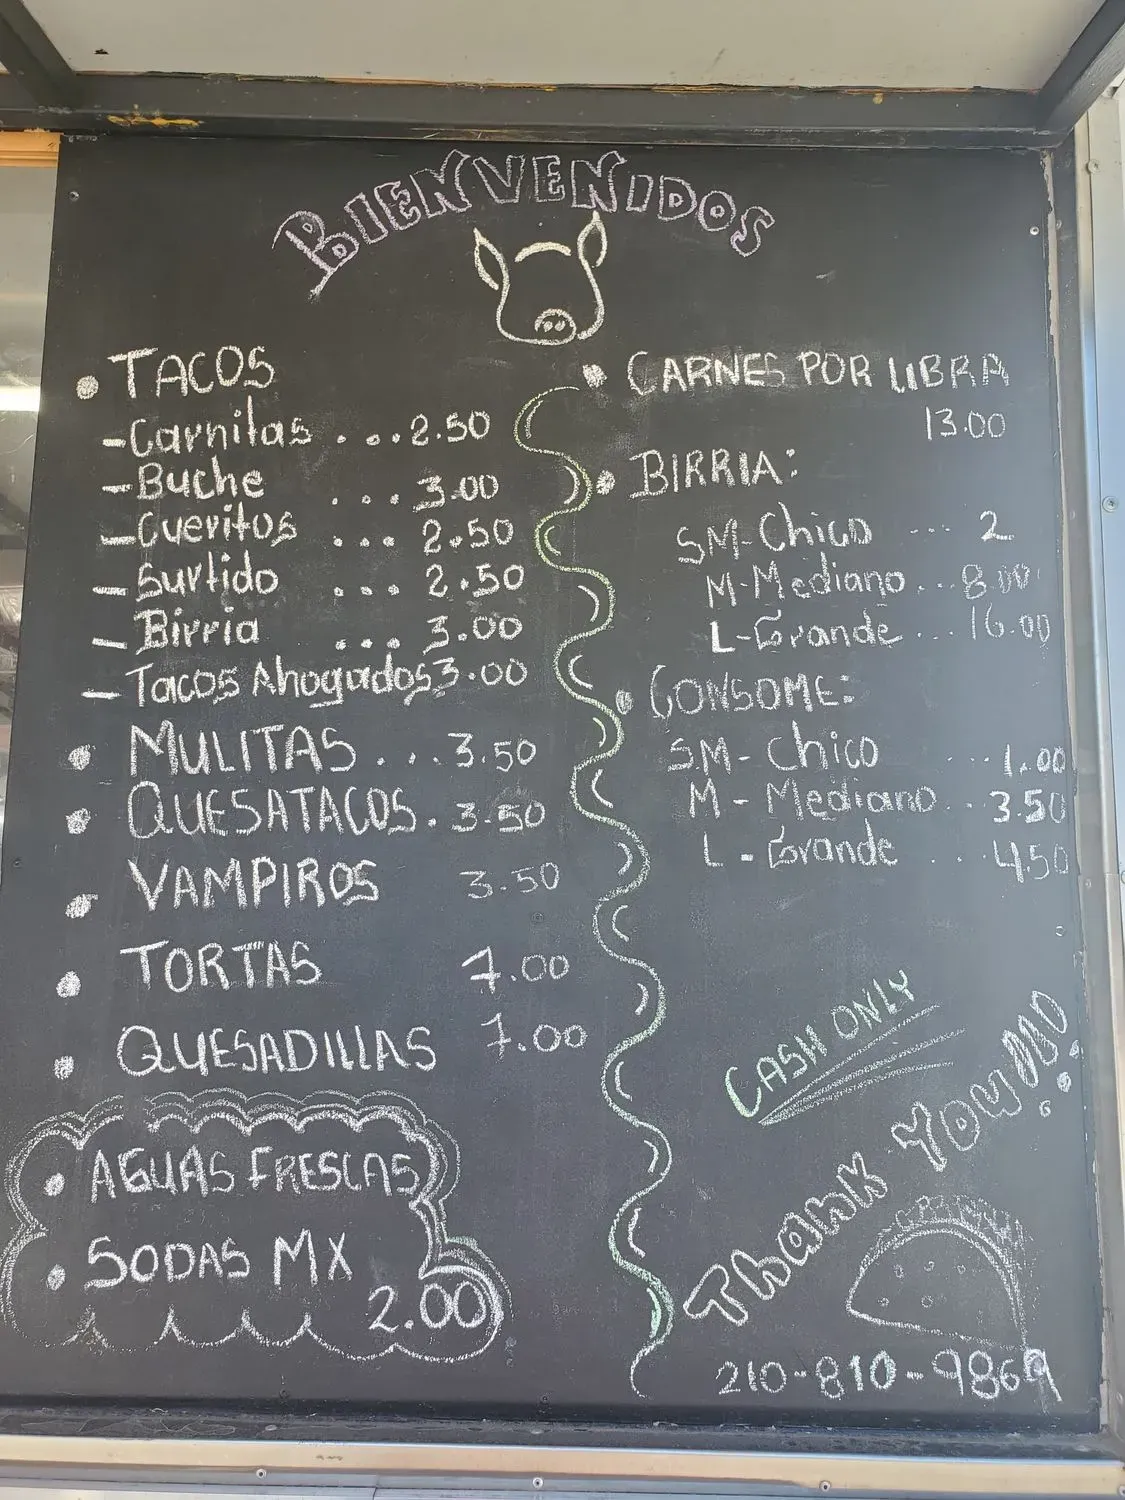 BIENVENIDOS
• TACOS
-Carnitas ... 2.50
-Buche ... 3.00
-Cueritos ... 2.50
-Surtido ... 2.50
-Birria ... 3.00
-Tacos Ahogados 3.00
• MULITAS ... 3.50
• QUESATACOS. 3.50
• VAMPIROS 3.50
• TORTAS 7.00
• QUESADILLAS 7.00
• AGUAS FRESCAS
• SODAS MX
2.00
• CARNES POR LIBRA
13.00
• BIRRIA:
SM-Chico ... 2
M-Mediano ... 8.00
L-Grande ... 16.00
• CONSOME:
SM-Chico ... 1.00
M-Mediano ... 3.50
L-Grande ... 450
CASH ONLY
THANK YOU
210-810-9869